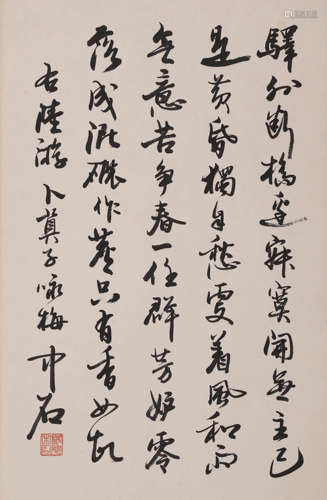 驛外断橋邊寂寞開無主已
是黄昏獨自愁更着風和雨
無意苦争春一任群芳妒零
落成泥碾作塵只有香如故
右陸游卜算子咏梅 中石